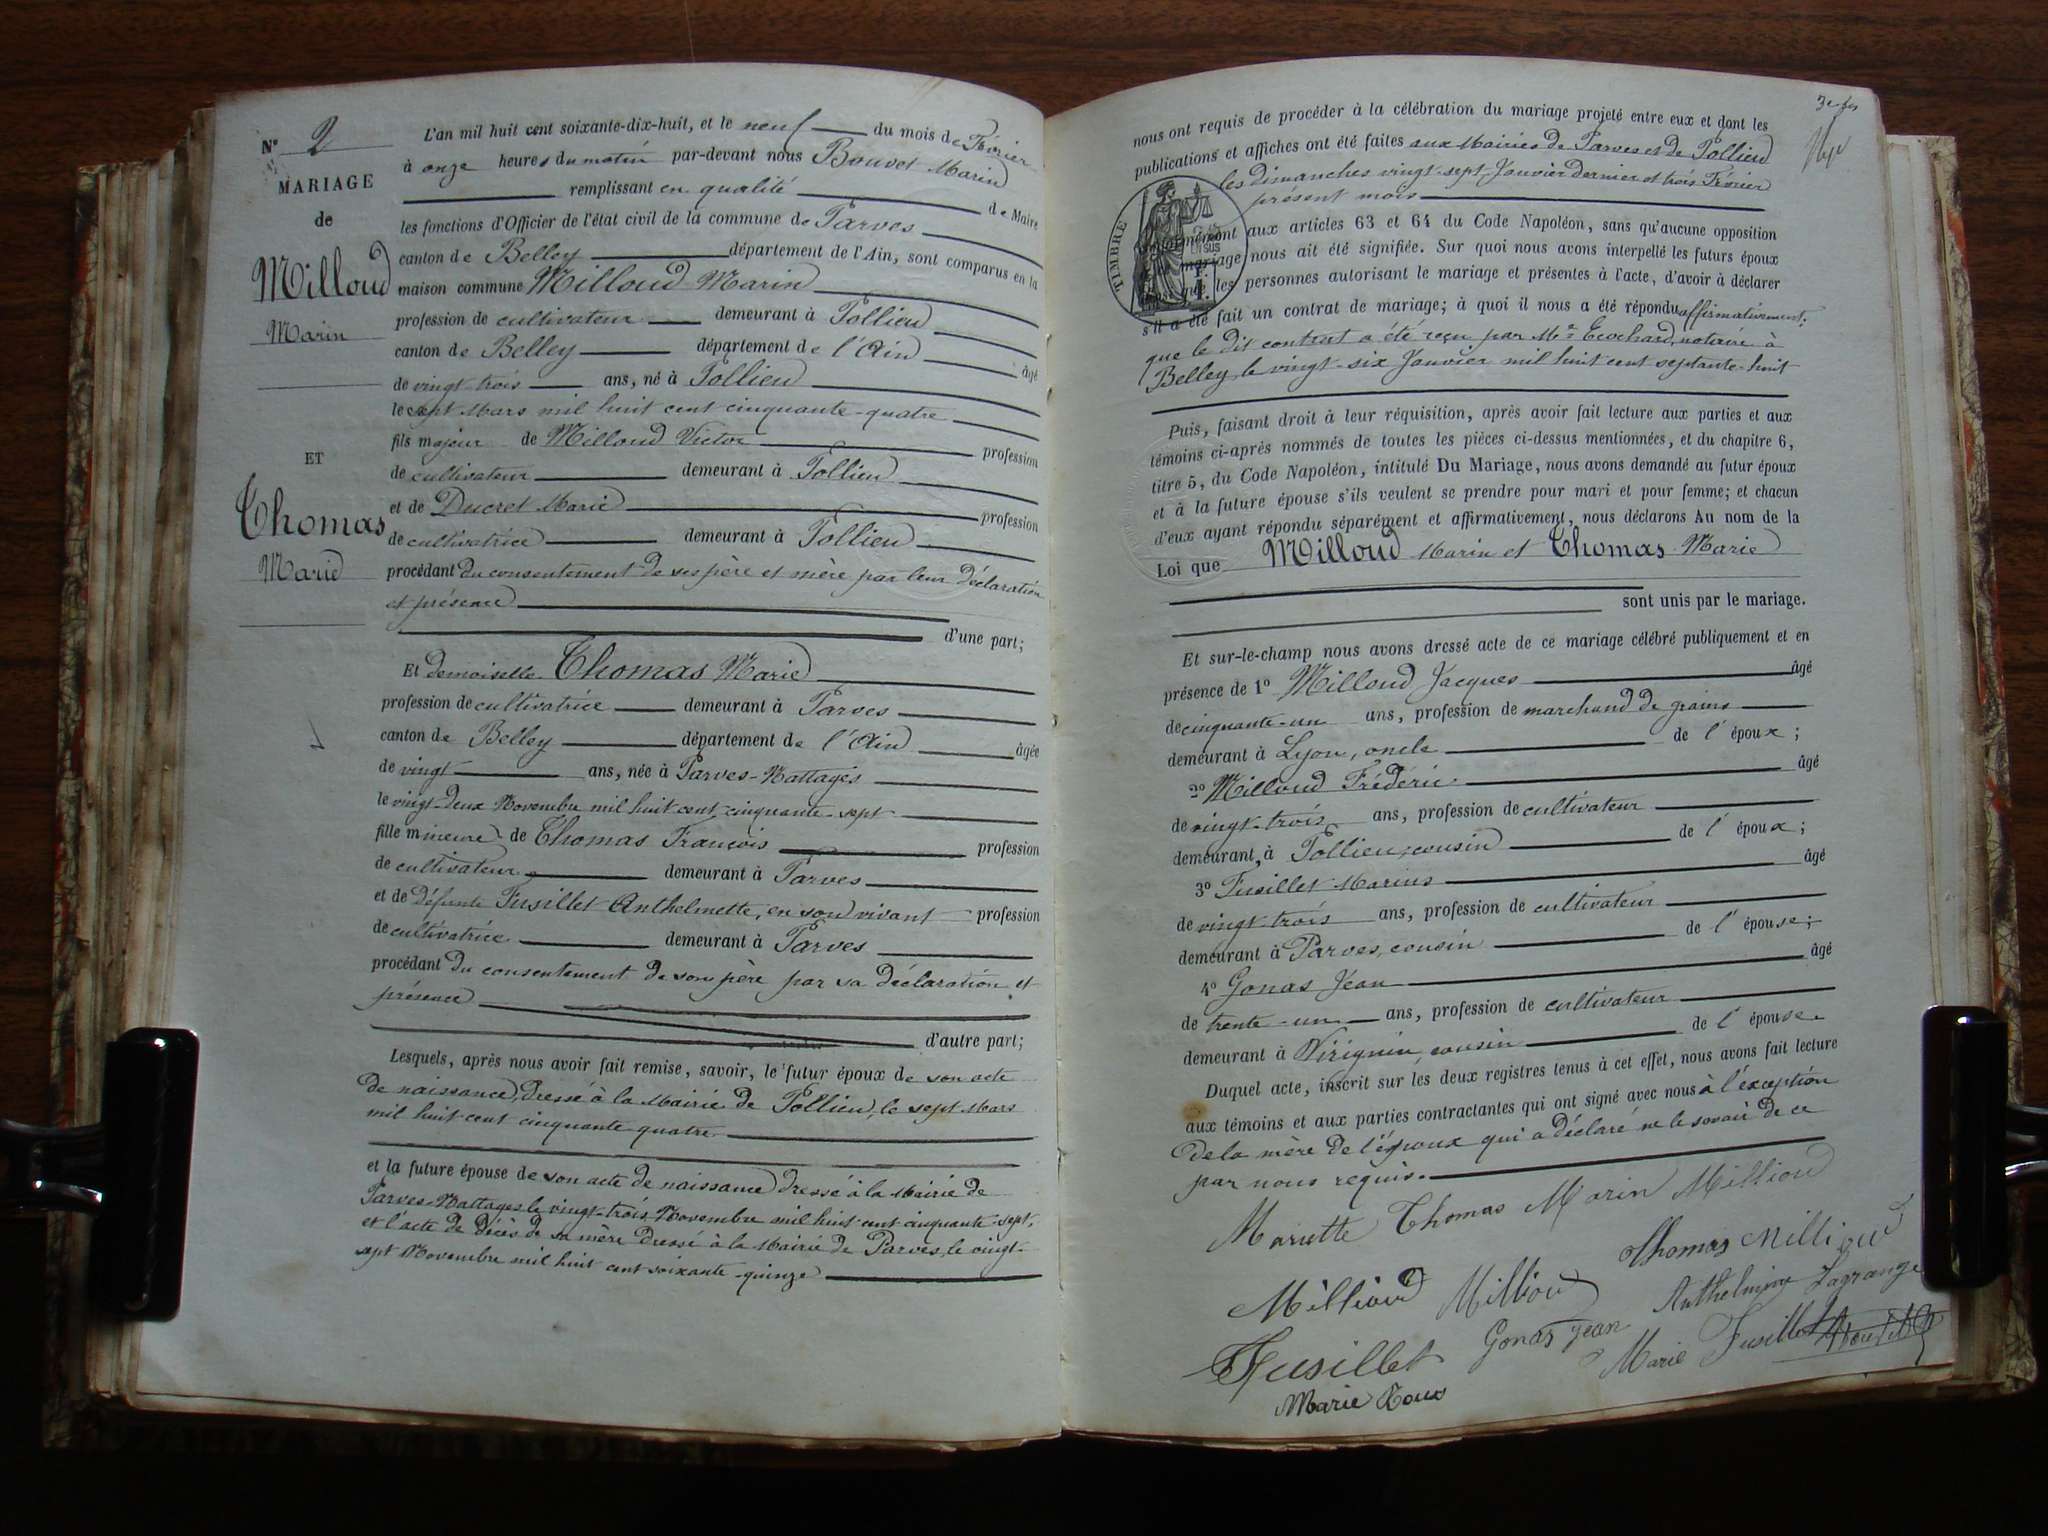 Nº 2
MARIAGE
de
Milloud
Marin
ET
Thomas
Marie
L'an mil huit cent soixante-dix-huit, et le neuf du mois de Février
à onze heures du matin par-devant nous Bouvet Marin
remplissant en qualité de Maire
les fonctions d'Officier de l'état civil de la commune de Parves
canton de Belley département de l'Ain, sont comparus en la
maison commune Milloud Marin
profession de cultivateur demeurant à Pollieu
canton de Belley département de l'Ain âgé
de vingt-trois ans, né à Pollieu
le sept Mars mil huit cent cinquante-quatre
fils majeur de Milloud Victor profession
de cultivateur demeurant à Pollieu
et de Ducret Marie profession
de cultivatrice demeurant à Pollieu
procédant du consentement de ses père et mère par leur déclaration
et présence
d'une part;
Et demoiselle Thomas Marie
profession de cultivatrice demeurant à Parves
canton de Belley département de l'Ain âgée
de vingt ans, née à Parves-Nattages
le vingt-deux Novembre mil huit cent cinquante-sept
fille mineure de Thomas François profession
de cultivateur demeurant à Parves
et de défunte Fusillet Anthelmette, en son vivant profession
de cultivatrice demeurant à Parves
procédant du consentement de son père par sa déclaration et
présence
d'autre part;
Lesquels, après nous avoir fait remise, savoir, le futur époux de son acte
de naissance, dressé à la Mairie de Pollieu, le sept Mars
mil huit cent cinquante quatre
et la future épouse de son acte de naissance dressé à la Mairie de
Parves-Nattages le vingt-trois Novembre mil huit cent cinquante-sept,
et l'acte de décès de sa mère dressé à la Mairie de Parves, le vingt-
sept Novembre mil huit cent soixante-quinze
nous ont requis de procéder à la célébration du mariage projeté entre eux et dont les
publications et affiches ont été faites aux Mairies de Parves et de Pollieu
les dimanches vingt-sept Janvier dernier et trois Février
présent mois
TIMBRE
conformément aux articles 63 et 64 du Code Napoléon, sans qu'aucune opposition
mariage nous ait été signifiée. Sur quoi nous avons interpellé les futurs époux
que les personnes autorisant le mariage et présentes à l'acte, d'avoir à déclarer
s'il a été fait un contrat de mariage; à quoi il nous a été répondu affirmativement;
que le dit contrat a été reçu par Me Ecochard, notaire à
Belley, le vingt-six Janvier mil huit cent septante-huit
Puis, faisant droit à leur réquisition, après avoir fait lecture aux parties et aux
témoins ci-après nommés de toutes les pièces ci-dessus mentionnées, et du chapitre 6,
titre 5, du Code Napoléon, intitulé Du Mariage, nous avons demandé au futur époux
et à la future épouse s'ils veulent se prendre pour mari et pour femme; et chacun
d'eux ayant répondu séparément et affirmativement, nous déclarons Au nom de la
Loi que Milloud Marin et Thomas Marie
sont unis par le mariage.
Et sur-le-champ nous avons dressé acte de ce mariage célébré publiquement et en
présence de 1º Milloud Jacques âgé
de cinquante-un ans, profession de marchand de grains
demeurant à Lyon, oncle de l'époux;
2º Milloud Frédéric âgé
de vingt-trois ans, profession de cultivateur
demeurant à Pollieu, cousin de l'époux;
3º Fusillet Marius âgé
de vingt trois ans, profession de cultivateur
demeurant à Parves, cousin de l'épouse;
4º Gonas Jean âgé
de trente-un ans, profession de cultivateur
demeurant à Virignin, cousin de l'épouse.
Duquel acte, inscrit sur les deux registres tenus à cet effet, nous avons fait lecture
aux témoins et aux parties contractantes qui ont signé avec nous à l'exception
de la mère de l'époux qui a déclaré ne le savoir de ce
par nous requis.
Mariette Thomas Marin Milliou
Thomas Milliou
Millioud Milliou
Anthelmine Lagrange
Fusillet Gonas Jean Marie Fusillet
Marie Roux